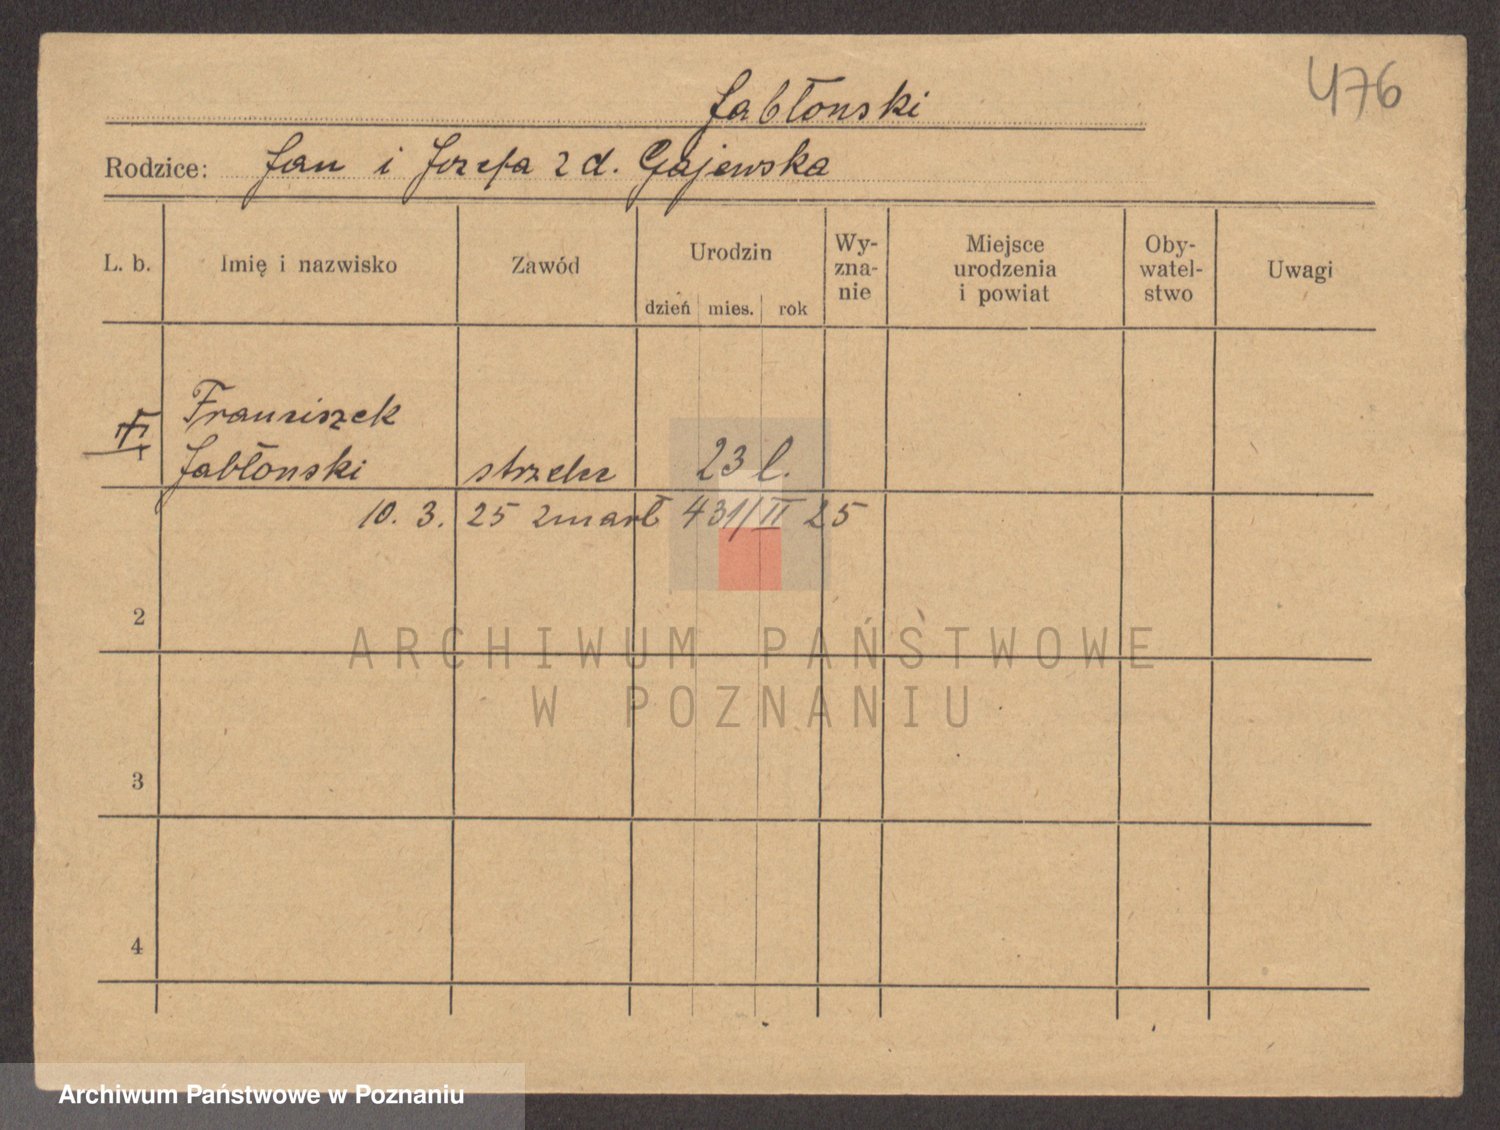 476
Jabłonski
Rodzice: Jan i Jozefa z d. Gajewska
L. b. Imię i nazwisko Zawód Urodzin dzień mies. rok Wy-zna-nie Miejsce urodzenia i powiat Oby-watel-stwo Uwagi
Franciszek
1 Jabłonski strzelec 23 l.
10. 3. 25 zmarł 431/II 25
2
ARCHIWUM PAŃSTWOWE
W POZNANIU
3
4
Archiwum Państwowe w Poznaniu